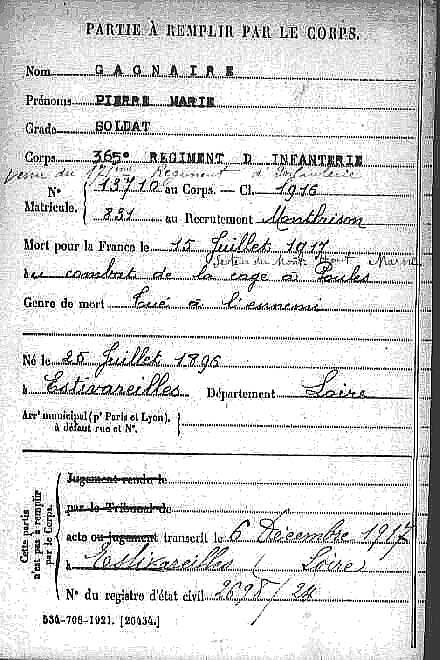 PARTIE À REMPLIR PAR LE CORPS.
Nom GAGNAIRE
Prénoms PIERRE MARIE
Grade SOLDAT
Corps 365e REGIMENT D INFANTERIE
venu du Régiment d'Infanterie
N° 13710 au Corps. — Cl. 1916
Matricule. 831 au Recrutement Montbrison
Mort pour la France le 15 Juillet 1917
Secteur du Mont Haut Marne
au combat de la cage à Poules
Genre de mort Tué à l'ennemi
Né le 25 Juillet 1896
à Estivareilles Département Loire
Arrt municipal (pr Paris et Lyon),
à défaut rue et N°.
Cette partie
n'est pas à remplir
par le Corps.
Jugement rendu le
par le Tribunal de
acte ou jugement transcrit le 6 Décembre 1917
à Estivareilles (Loire)
N° du registre d'état civil
534-708-1921. [26434.]